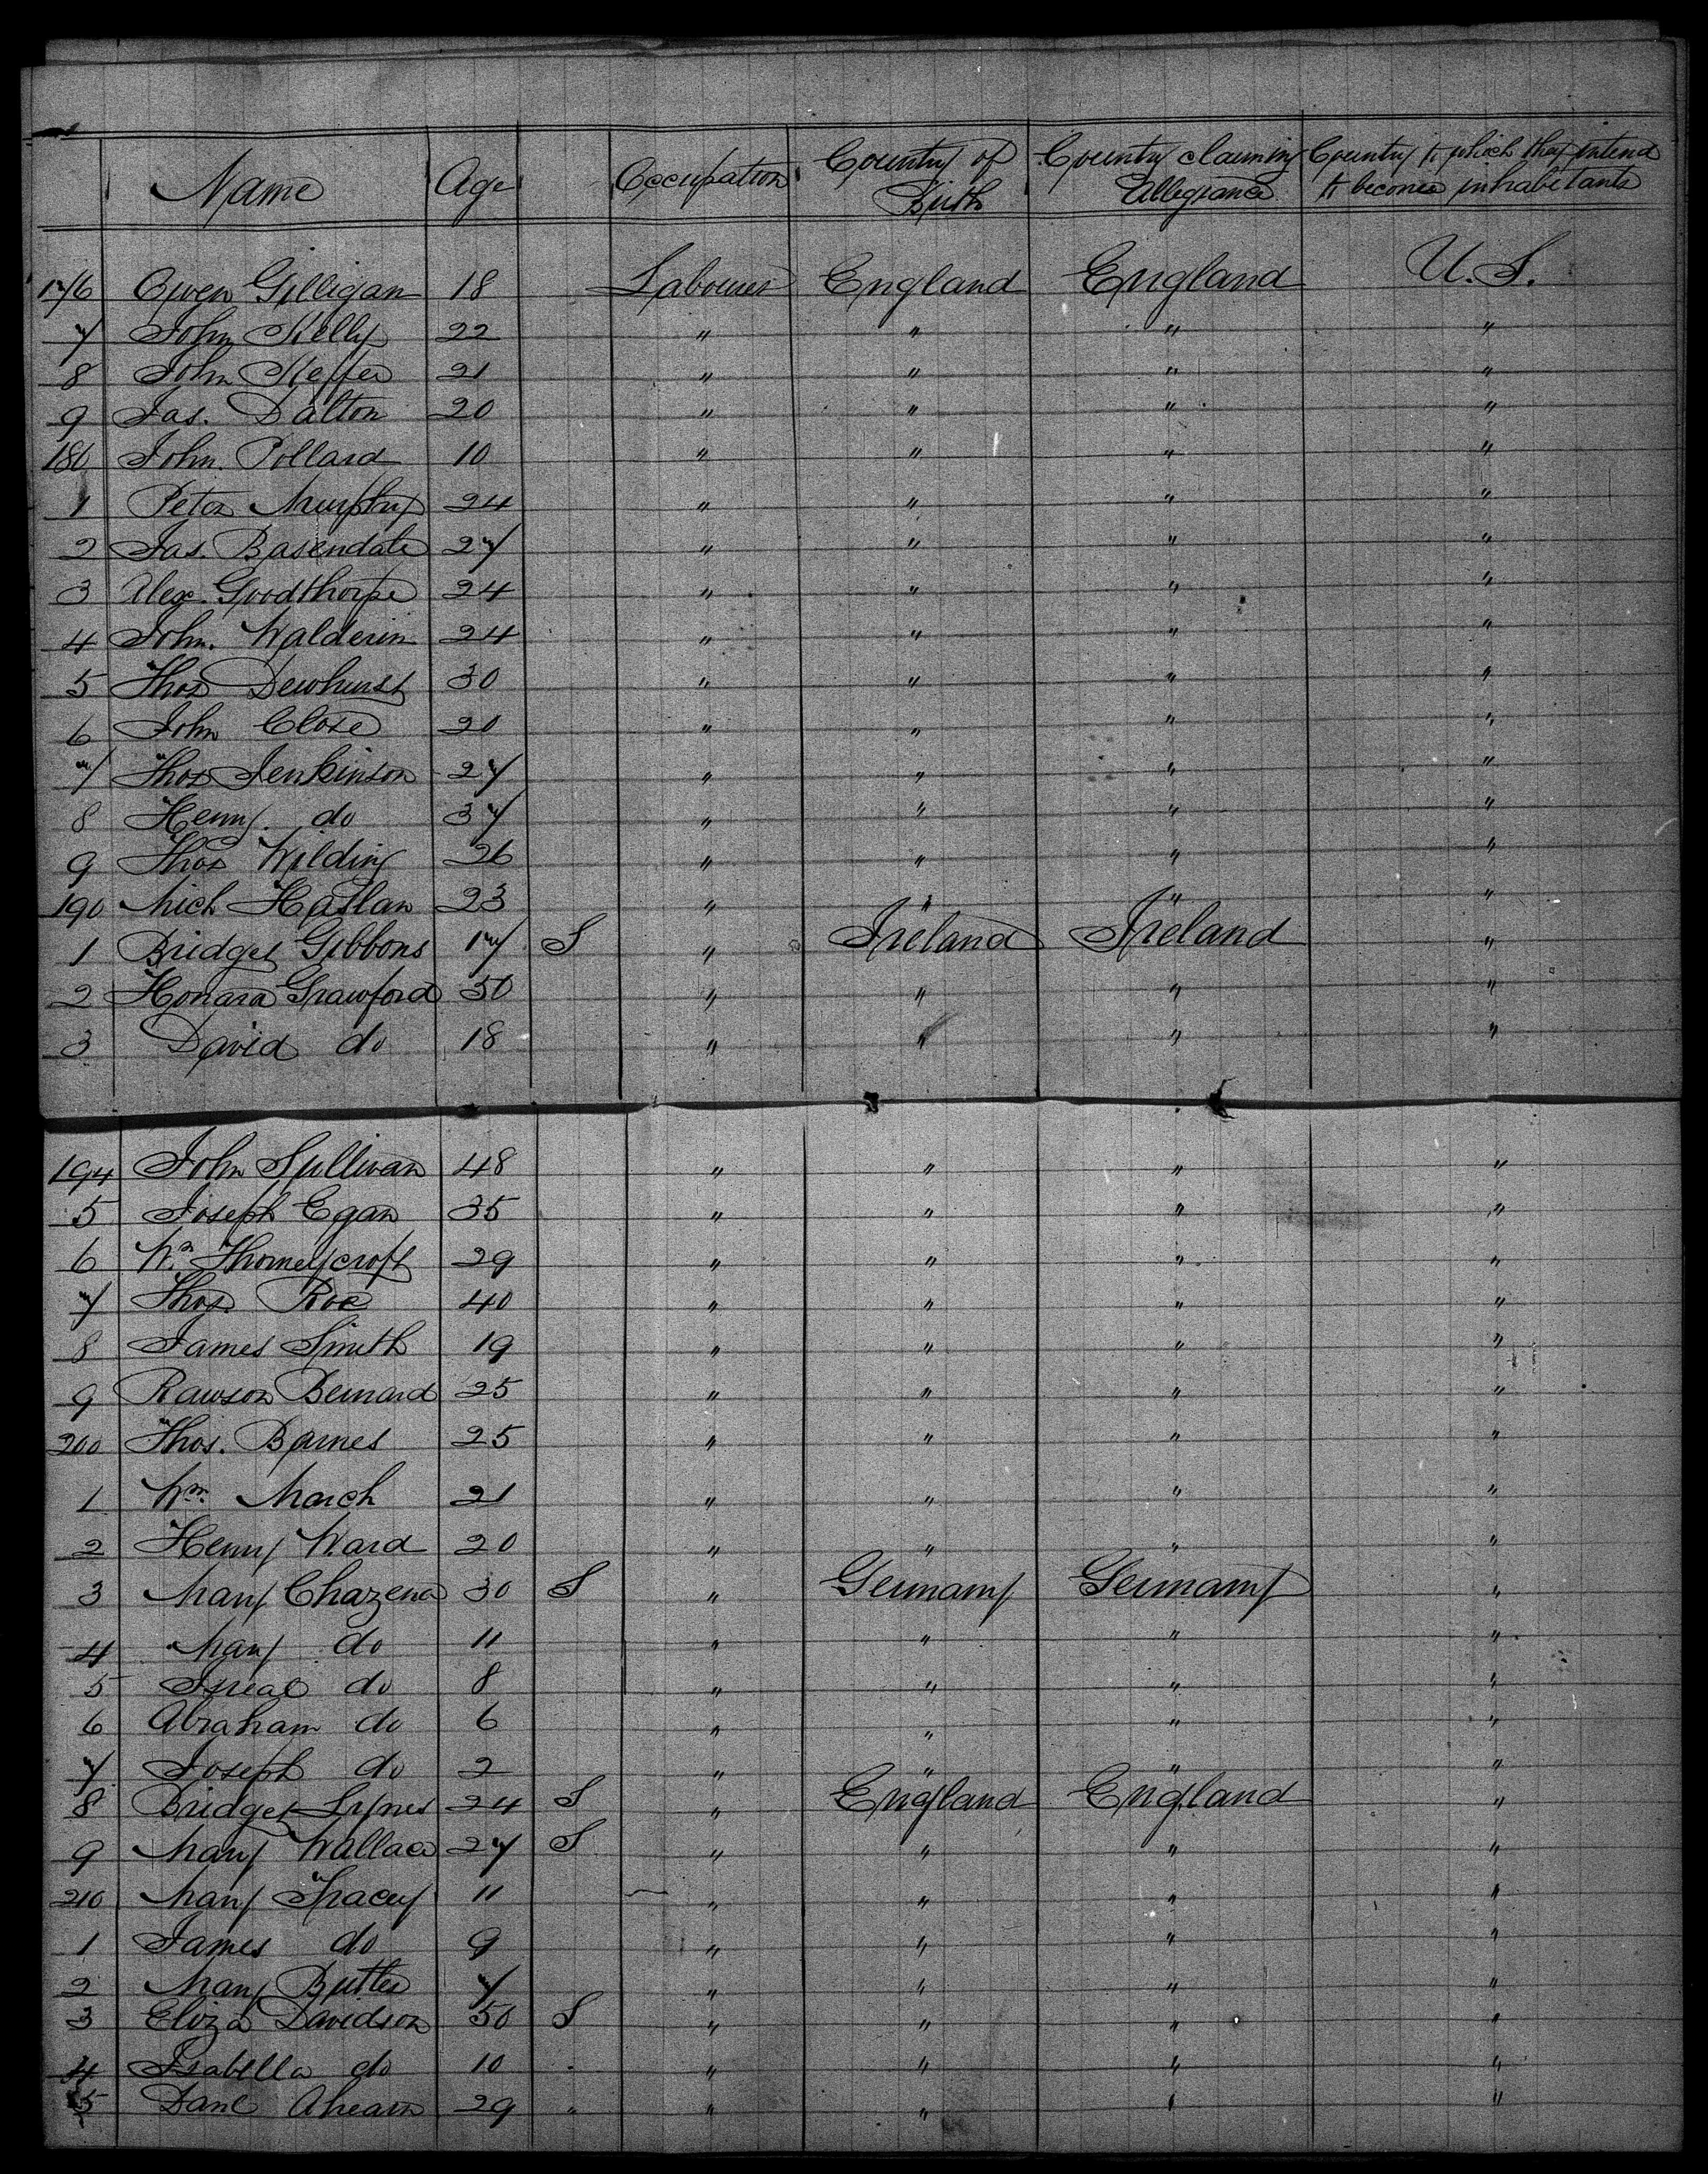 Name Age Occupation Country of Birth Country claiming Allegiance Country to which they intend to become inhabitants
176 Owen Gilligan 18 Labourer England England U.S.
7 John Kelly 22 " " " "
8 John Keffer 21 " " " "
9 Jas. Dalton 20 " " " "
180 John Pollard 10 " " " "
1 Peter Murphy 24 " " " "
2 Jas. Basendale 27 " " " "
3 Alex. Goodthorpe 24 " " " "
4 John. Walderin 24 " " " "
5 Thos Dewhurst 30 " " " "
6 John Close 20 " " " "
7 Thos Jenkinson 27 " " " "
8 Henry do 37 " " " "
9 Thos Wilding 26 " " " "
190 Mich Haslan 23 " " " "
1 Bridget Gibbons 17 S " Ireland Ireland "
2 Honara Crawford 50 " " " "
3 David do 18 " " " "
194 John Sullivan 48 " " " "
5 Joseph Egan 35 " " " "
6 Wm Thorneycroft 29 " " " "
7 Thos. Roe 40 " " " "
8 James Smith 19 " " " "
9 Rawson Bernard 25 " " " "
200 Thos. Barnes 25 " " " "
1 Wm. March 21 " " " "
2 Henry Ward 20 " " " "
3 Mary Chazena 30 S " Germany Germany "
4 Mary do 11 " " " "
5 do 8 " " " "
6 Abraham do 6 " " " "
7 Joseph do 2 " " " "
8 Bridget Lynes 24 S " England England "
9 Mary Wallace 27 S " " " "
210 Mary Tracey 11 " " " "
1 James do 9 " " " "
2 Mary Butler 7 " " " "
3 Eliza Davidson 50 S " " " "
4 Isabella do 10 " " " "
5 Danl Ahearn 29 " " " "